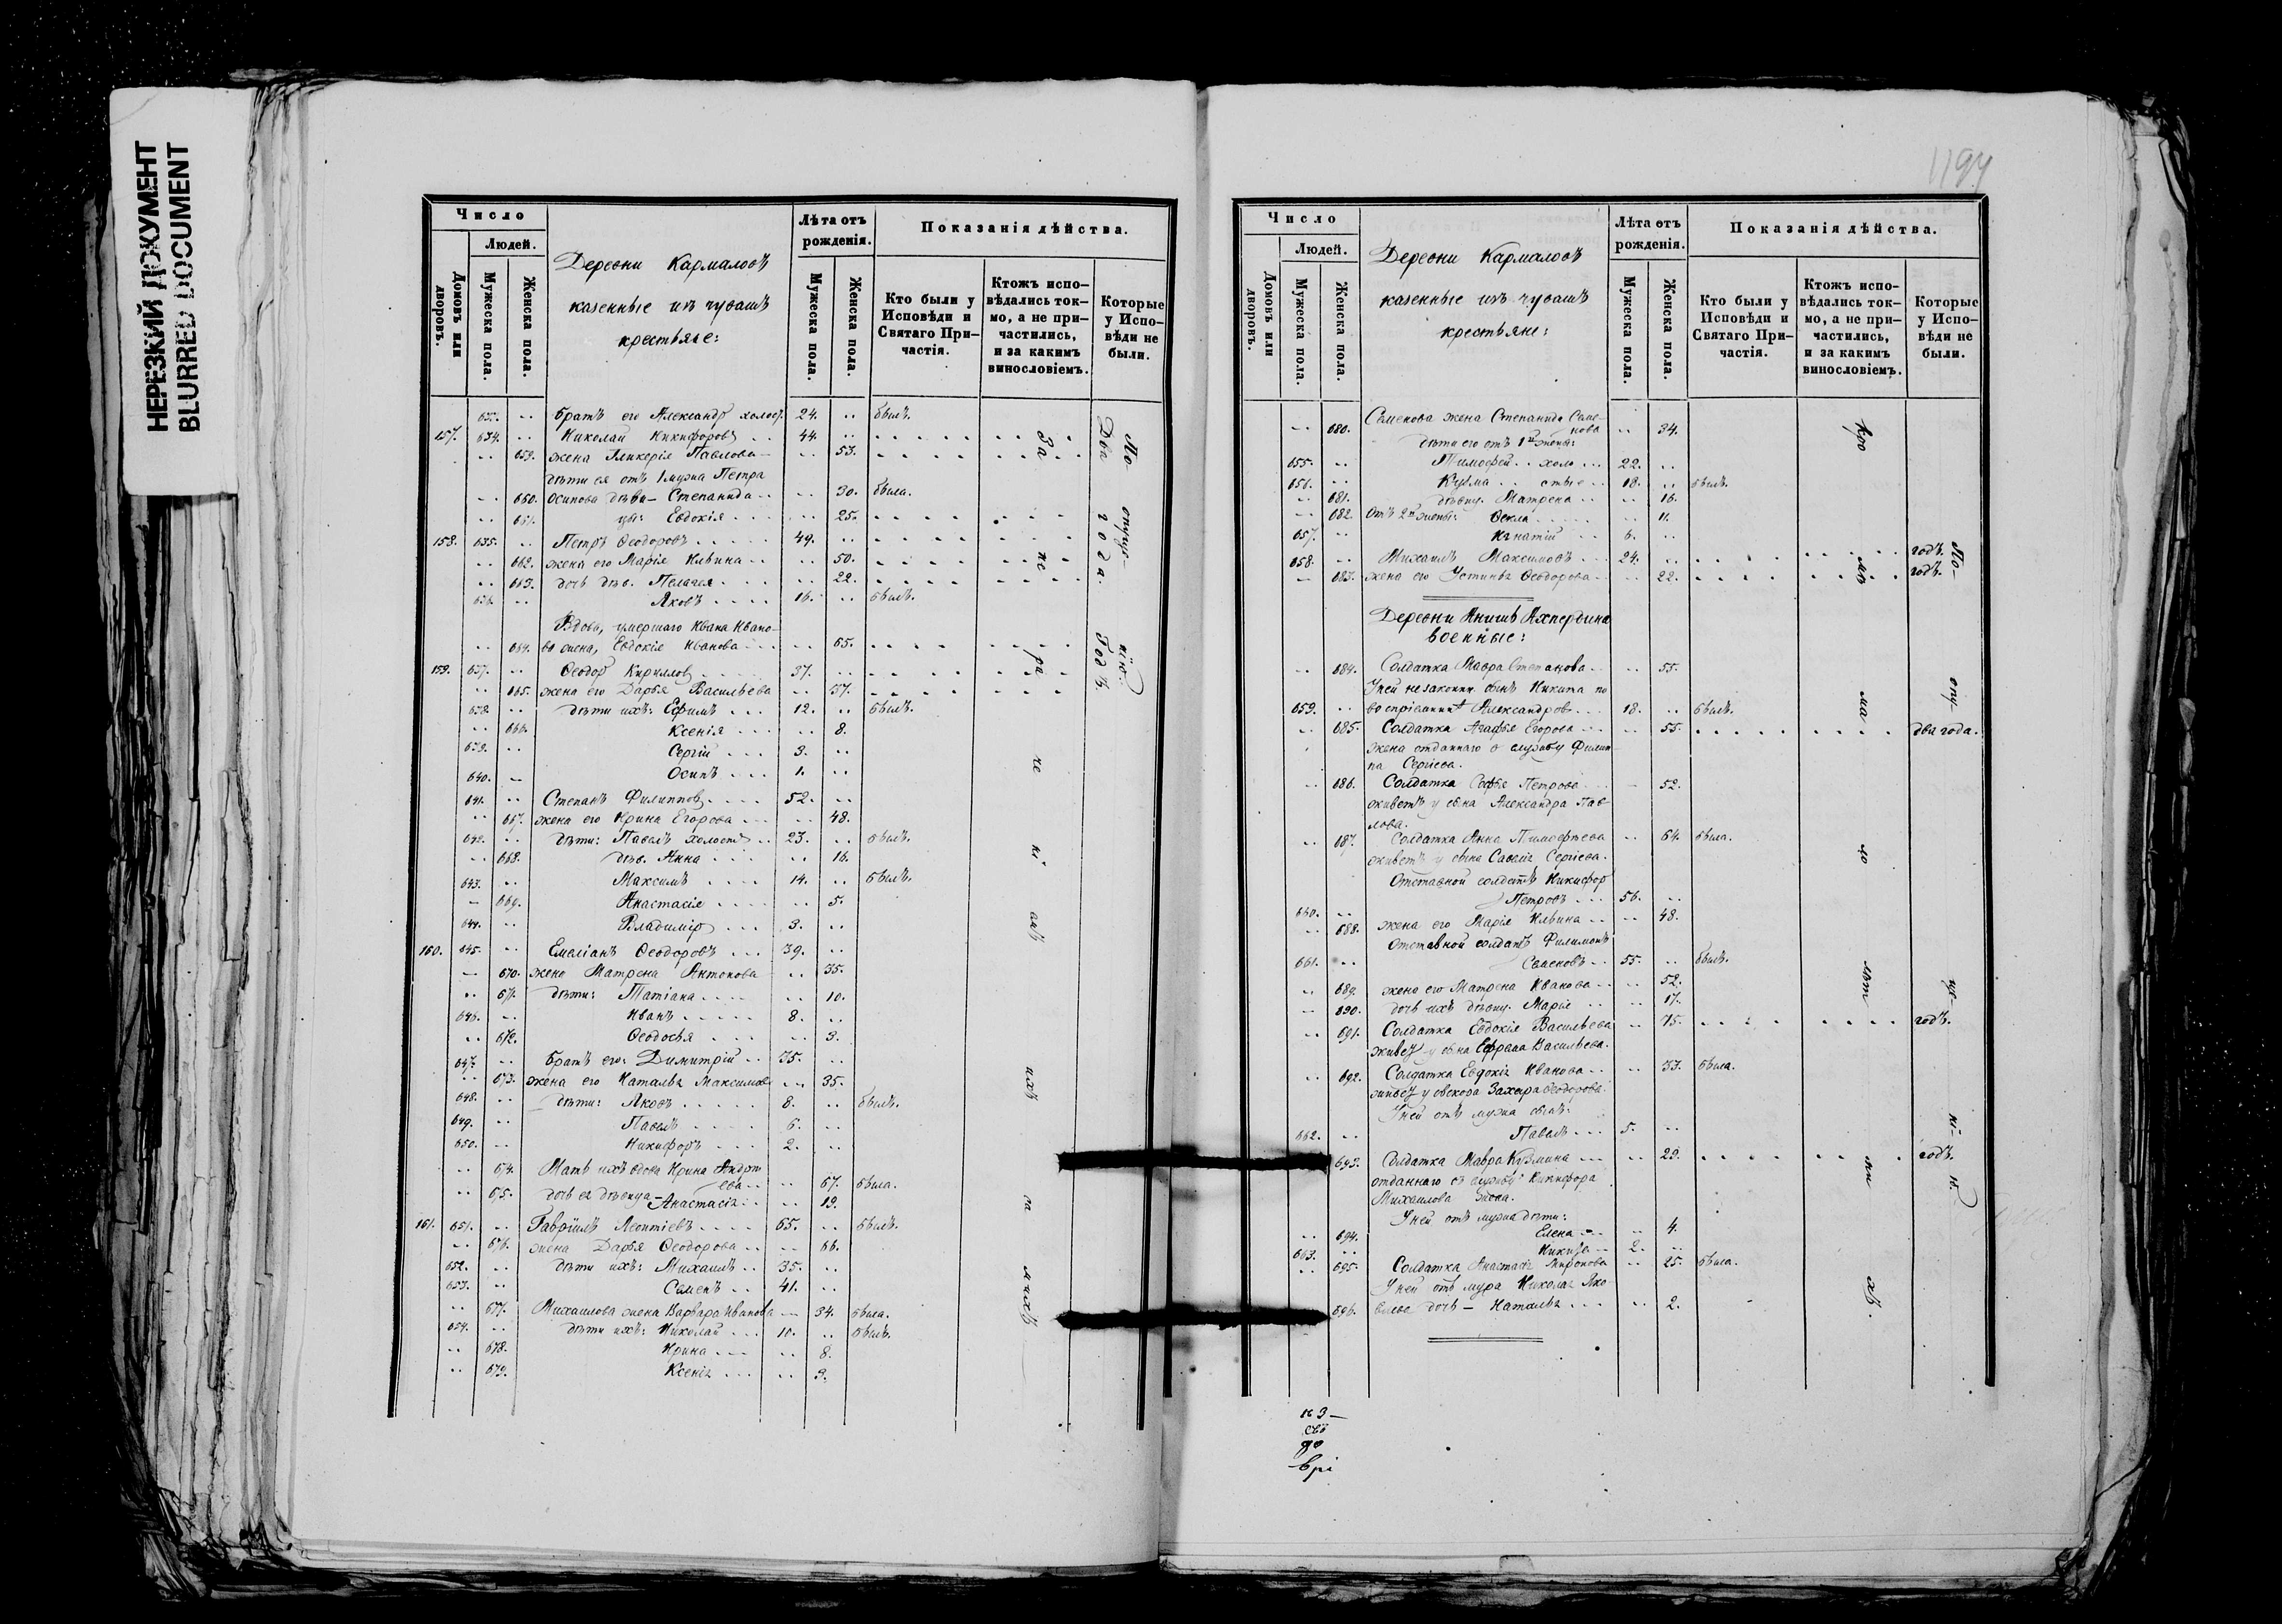 НЕРЕЗКИЙ ДОКУМЕНТ
BLURRED DOCUMENT
Число
Людей.
Домовъ или дворовъ.
Мужеска пола.
Женска пола.
Деревни Кармаловъ
казенные изъ чувашъ
крестьяне:
Лѣта отъ рожденія.
Мужеска пола.
Женска пола.
Показанія дѣйства.
Кто были у Исповѣди и Святаго При-частія.
Ктожъ испо-вѣдались ток-мо, а не при-частились, и за какимъ винословіемъ.
Которые у Испо-вѣди не были.
братъ его Александръ холост. 24. .. былъ.
157. 634. .. Николай Никифоровъ .. 44. ..
.. 659. жена Гликерія Павлова .. 53.
дѣти ея отъ 1 мужа Петра
.. 660. Осипова дѣви- Степанида .. .. 30. была.
.. 661. цы: Евдокія .. 25.
158. 635. .. Петръ Ѳеодоровъ 49. ..
.. 662. жена его Марія Ильина .. .. 50.
.. 663. дочь дѣв. Пелагея .. 22.
636. .. Яковъ 16. .. былъ.
Вдова, умершаго Ивана Ивано-
.. 664. ва жена, Евдокія Иванова .. 65.
159. 637. .. Ѳеодоръ Кирилловъ 37. ..
.. 665. жена его Дарья Васильева .. 37.
638. .. дѣти ихъ: Ефимъ 12. .. былъ.
.. 666. Ксенія .. 8.
639. .. Сергій 3. ..
640. .. Осипъ 1. ..
641. .. Степанъ Филипповъ 52. ..
.. 667. жена его Ирина Егорова .. 48.
642. .. дѣти: Павелъ холостъ .. 23. .. былъ.
.. 668. дѣв. Анна .. 16.
643. .. Максимъ 14. .. былъ.
.. 669. Анастасія .. 5.
644. .. Владиміръ 3. ..
160. 645. .. Емеліанъ Ѳеодоровъ 39. ..
.. 670. жена Матрена Антонова .. 35.
.. 671. дѣти: Татіана .. 10.
646. .. Иванъ 8. ..
.. 672. Ѳеодосья .. 3.
647. .. братъ его: Димитрій .. 35. ..
.. 673. жена его Наталья Максимова .. 35.
648. .. дѣти: Яковъ 8. .. былъ.
649. .. Павелъ 6. ..
650. .. Никифоръ 2. ..
.. 674. Мать ихъ вдова Ирина Андре
ева .. .. 67. была.
.. 675. дочь ея дѣвица- Анастасія .. 19.
161. 651. .. Гавріилъ Леонтіевъ 65. .. былъ.
.. 676. жена Дарья Ѳеодорова .. .. 66.
652. .. дѣти ихъ: Михаилъ .. 35. ..
653. .. Семенъ .. 41. ..
.. 677. Михаилова жена Варвара Иванова .. 34. была.
654. .. дѣти ихъ: Николай 10. .. былъ.
.. 678. Ирина .. 8.
.. 679. Ксенія .. 3.
Число
Людей.
Домовъ или дворовъ.
Мужеска пола.
Женска пола.
Деревни Кармаловъ
казенные изъ чувашъ
крестьяне:
Лѣта отъ рожденія.
Мужеска пола.
Женска пола.
Показанія дѣйства.
Кто были у Исповѣди и Святаго При-частія.
Ктожъ испо-вѣдались ток-мо, а не при-частились, и за какимъ винословіемъ.
Которые у Испо-вѣди не были.
Семенова жена Степанида Семе-
.. 680. нова .. 34.
дѣти его отъ 1й жены:
655. .. Тимофей .. холо 22. ..
656. .. Кузма .. стые .. 18. .. былъ.
.. 681. дѣвиц. Матрена .. .. 16.
.. 682. отъ 2й жены: Ѳекла .. 11.
657. .. Игнатій 6. ..
658. .. Михаилъ Максимовъ 24. .. годъ.
683. жена его Устинья Ѳеодорова .. 22. годъ.
Деревни Анишъ Ахпердина
военные:
.. 684. Солдатка Мавра Степанова .. 55.
У ней незаконн. сынъ Никита по
659. .. воспріемнику Александровъ 18. .. былъ.
.. 685. Солдатка Агафья Егорова .. 55. два года.
жена отданнаго въ службу Филип-
па Сергіева.
.. 686. Солдатка Софья Петрова 52.
живетъ у сына Александра Пав-
лова.
.. 687. Солдатка Анна Тимофеева .. 64. была.
живетъ у сына Савелія Сергіева.
Отставной солдатъ Никифоръ
660. .. Петровъ 56. ..
.. 688. жена его Марія Ильина .. .. 48.
Отставной солдатъ Филимонъ
661. .. Семеновъ .. 55. .. былъ.
.. 689. жена его Матрена Иванова .. 52.
.. 690. дочь ихъ дѣвиц. Марія .. 17.
.. 691. Солдатка Евдокія Васильева .. 75. годъ.
живетъ у сына Ефрема Васильева.
.. 692. Солдатка Евдокія Иванова .. 33. была.
живетъ у свекора Захара Ѳеодорова.
У ней отъ мужа сынъ:
662. .. Павелъ 5. ..
693. Солдатка Мавра Кузмина .. 29. годъ.
отданнаго въ службу Никифора
Михаилова жена.
У ней отъ мужа дѣти:
.. 694. Елена .. 4.
663. .. Никита 2. ..
.. 695. Солдатка Анастасія Миронова .. 25. была.
У ней отъ мужа Николая Яко-
696. влева дочь - Наталья .. 2.